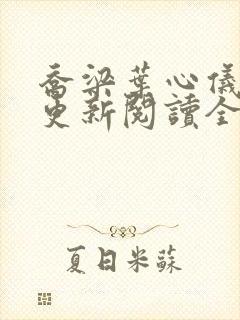 喬梁葉心儀
更新閱讀全
夏日米蘇